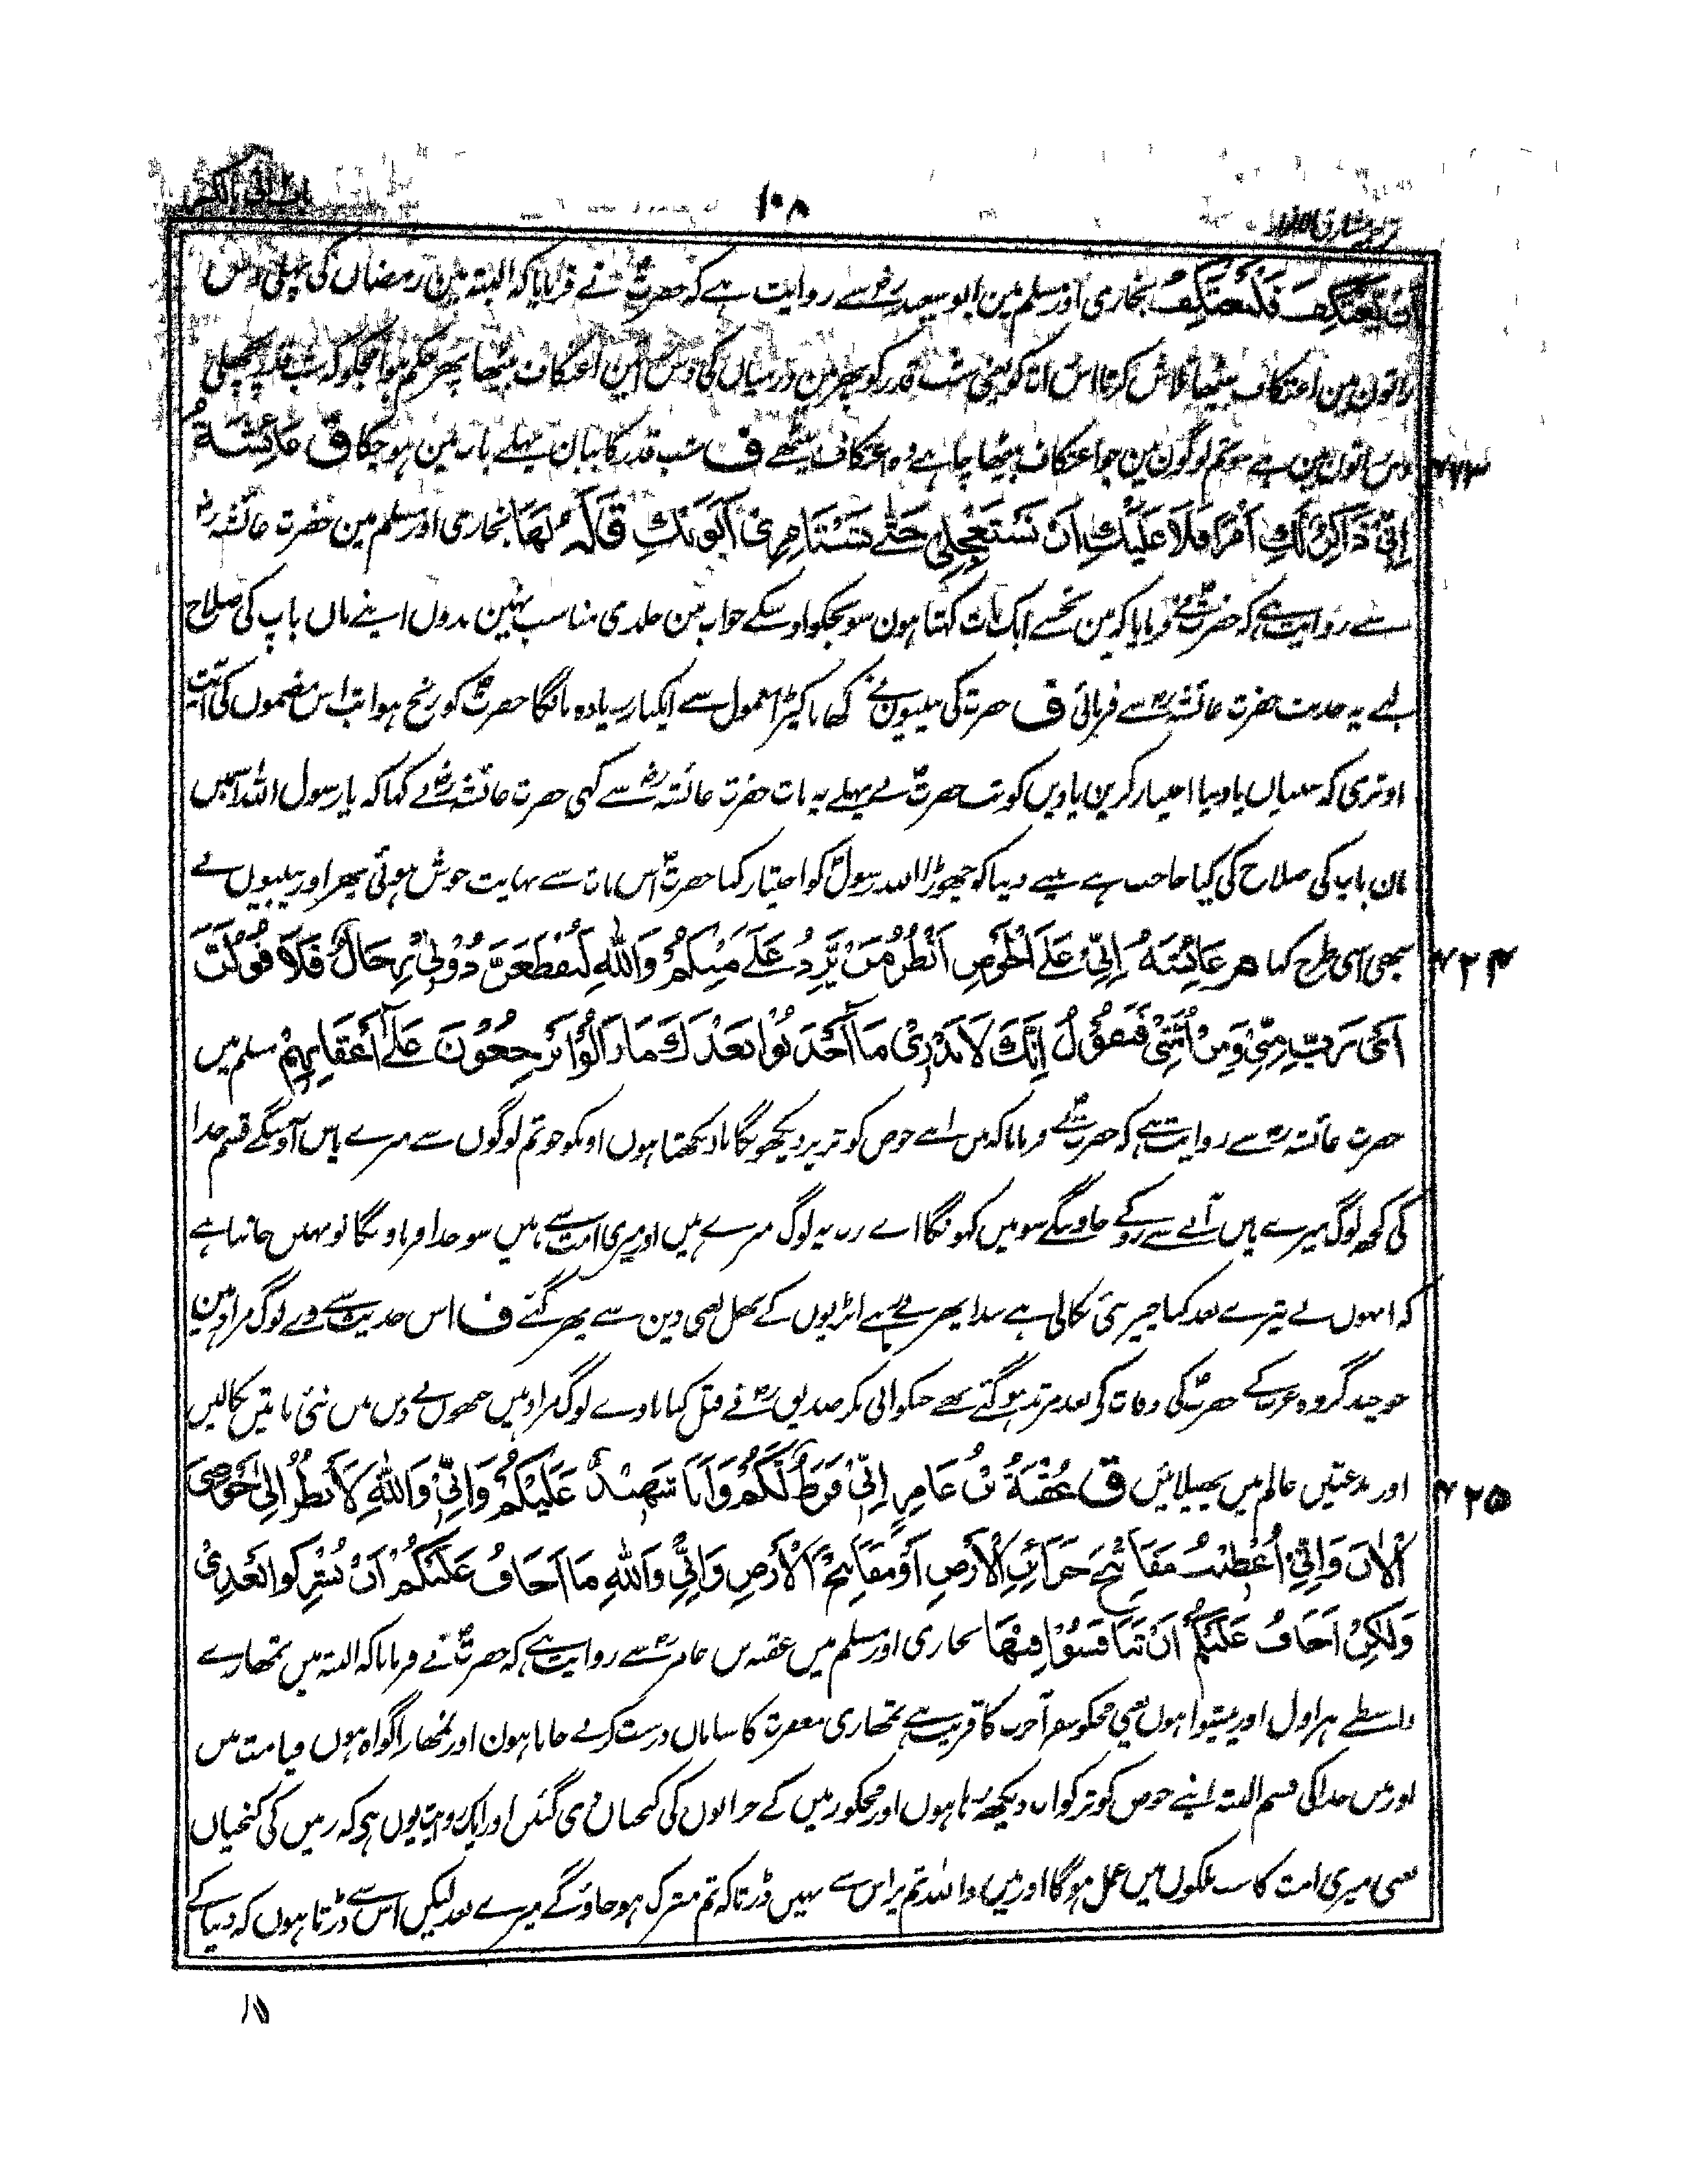 ۱۰۸
ان یعتکف فلیعتکف بخاری اور مسلم مین ابو سعید رض سے روایت ہے کہ حضرت نے فرمایا کہ البتہ مین رمضان کی پہلی دس
راتون مین اعتکاف بیٹھا تلاش کرتا اس رات کو یعنی شب قدر کو پھر مین درمیان کی دس مین اعتکاف بیٹھا پھر حکم ہوا مجکو کہ شب قدر پچھلی
دس راتون مین ہے سو تم لوگون مین جو اعتکاف بیٹھا چاہے وہ اعتکاف بیٹھے ف شب قدر کا بیان پہلے باب مین ہو چکا ق عَائِشَةُ
اِنِّیْ ذَاکِرٌ لَکِ اَمْرًا فَلَا عَلَیْکِ اَنْ تَسْتَعْجِلِیْ حَتّٰی تَسْتَامِرِیْ اَبَوَیْکِ قَالَهُ لَهَا بخاری اور مسلم مین حضرت عائشہ رض
سے روایت ہے کہ حضرت نے فرمایا کہ مین تجھسے ایک بات کہتا ہون سو تجکو اوسکے جواب مین جلدی مناسب نہین بدوں اپنے ماں باپ کی صلاح
لیے یہ حدیث حضرت عائشہ رض سے فرمائی ف حضرت کی بیبیوں نے کھانا کپڑا معمول سے ایکبار زیادہ مانگا حضرت کو رنج ہوا تب اس مضموں کی آیت
اوتری کہ بیبیاں یا دنیا اختیار کرین یا دیں کو تب حضرت نے پہلے یہ بات حضرت عائشہ رض سے کہی حضرت عائشہ رض نے کہا کہ یا رسول اللہ اسمیں
ماں باپ کی صلاح کی کیا حاجت ہے میںے دنیا کو چھوڑا اللہ رسول کو اختیار کیا حضرت اس بات سے نہایت خوش ہوئی پھر اور بیبیوں نے
بھی اسی طرح کہا م عَائِشَةُ اِنِّیْ عَلَی الْحَوْضِ اَنْظُرُ مَنْ یَّرِدُ عَلَیَّ مِنْکُمْ وَاللّٰهِ لَیُقْطَعَنَّ دُوْنِیْ رِجَالٌ فَلَاَقُوْلَنَّ
۴۲۴
اَیْ رَبِّ مِنِّیْ وَمِنْ اُمَّتِیْ فَیَقُوْلُ اِنَّكَ لَا تَدْرِیْ مَا اَحْدَثُوْا بَعْدَكَ مَا زَالُوْا یَرْجِعُوْنَ عَلٰی اَعْقَابِهِمْ مسلم میں
حضرت عائشہ رض سے روایت ہے کہ حضرت نے فرمایا کہ میں اپنے حوض کوثر پر دیکھونگا یا دیکھتا ہوں اوںکو جو تم لوگوں سے میرے پاس آوینگے قسم خدا
کی کچھ لوگ میرے پاس آنے سے روکے جاوینگے سو میں کہونگا اے رب یہ لوگ میرے ہیں اور میری امت سے ہیں سو خدا فرماویگا تو نہیں جانتا ہے
کہ انہوں نے تیرے بعد کیا چیز نئی نکالی ہے سدا پھرتے رہے ایڑیوں کے بھل یعنی دین سے پھر گئے ف اس حدیث سے وے لوگ مراد ہین
جو چند گروہ عرب کے حضرت کی وفات کے بعد مرتد ہو گئے تھے جنکو ابی بکر صدیق رض نے قتل کیا یا وے لوگ مراد ہیں جنھوں نے دیں میں نئی باتیں نکالیں
اور بدعتیں عالم میں پھیلائیں ق عُقْبَةُ بْنُ عَامِرٍ اِنِّیْ فَرَطٌ لَّکُمْ وَاَنَا شَهِیْدٌ عَلَیْکُمْ وَاِنِّیْ وَاللّٰهِ لَاَنْظُرُ اِلٰی حَوْضِیَ
۴۲۵
الْاٰنَ وَاِنِّیْ اُعْطِیْتُ مَفَاتِیْحَ خَزَائِنِ الْاَرْضِ اَوْ مَفَاتِیْحَ الْاَرْضِ وَاِنِّیْ وَاللّٰهِ مَا اَخَافُ عَلَیْکُمْ اَنْ تُشْرِکُوْا بَعْدِیْ
وَلٰکِنْ اَخَافُ عَلَیْکُمْ اَنْ تَنَافَسُوْا فِیْهَا بخاری اور مسلم میں عقبہ بن عامر رض سے روایت ہے کہ حضرت نے فرمایا کہ البتہ میں تمھارے
واسطے ہراول اور پیشوا ہوں یعنی مجکو سفر آخرت کا قریب ہے تمھاری مغفرت کا ساماں درست کرنے جاتا ہون اور تمھارا گواہ ہوں قیامت میں
اور میں خدا کی قسم البتہ اپنے حوض کوثر کو اب دیکھ رہا ہوں اور مجکو زمیں کے خزانوں کی کنجیاں دی گئیں اور ایک روایت یوں ہی کہ زمیں کی کنجیاں
یعنی میری امت کا سب ملکوں میں عمل ہوگا اور میں واللہ تم پر اس سے نہیں ڈرتا کہ تم مشرک ہو جاؤگے میرے بعد لیکں اس سے ڈرتا ہوں کہ دنیا کے